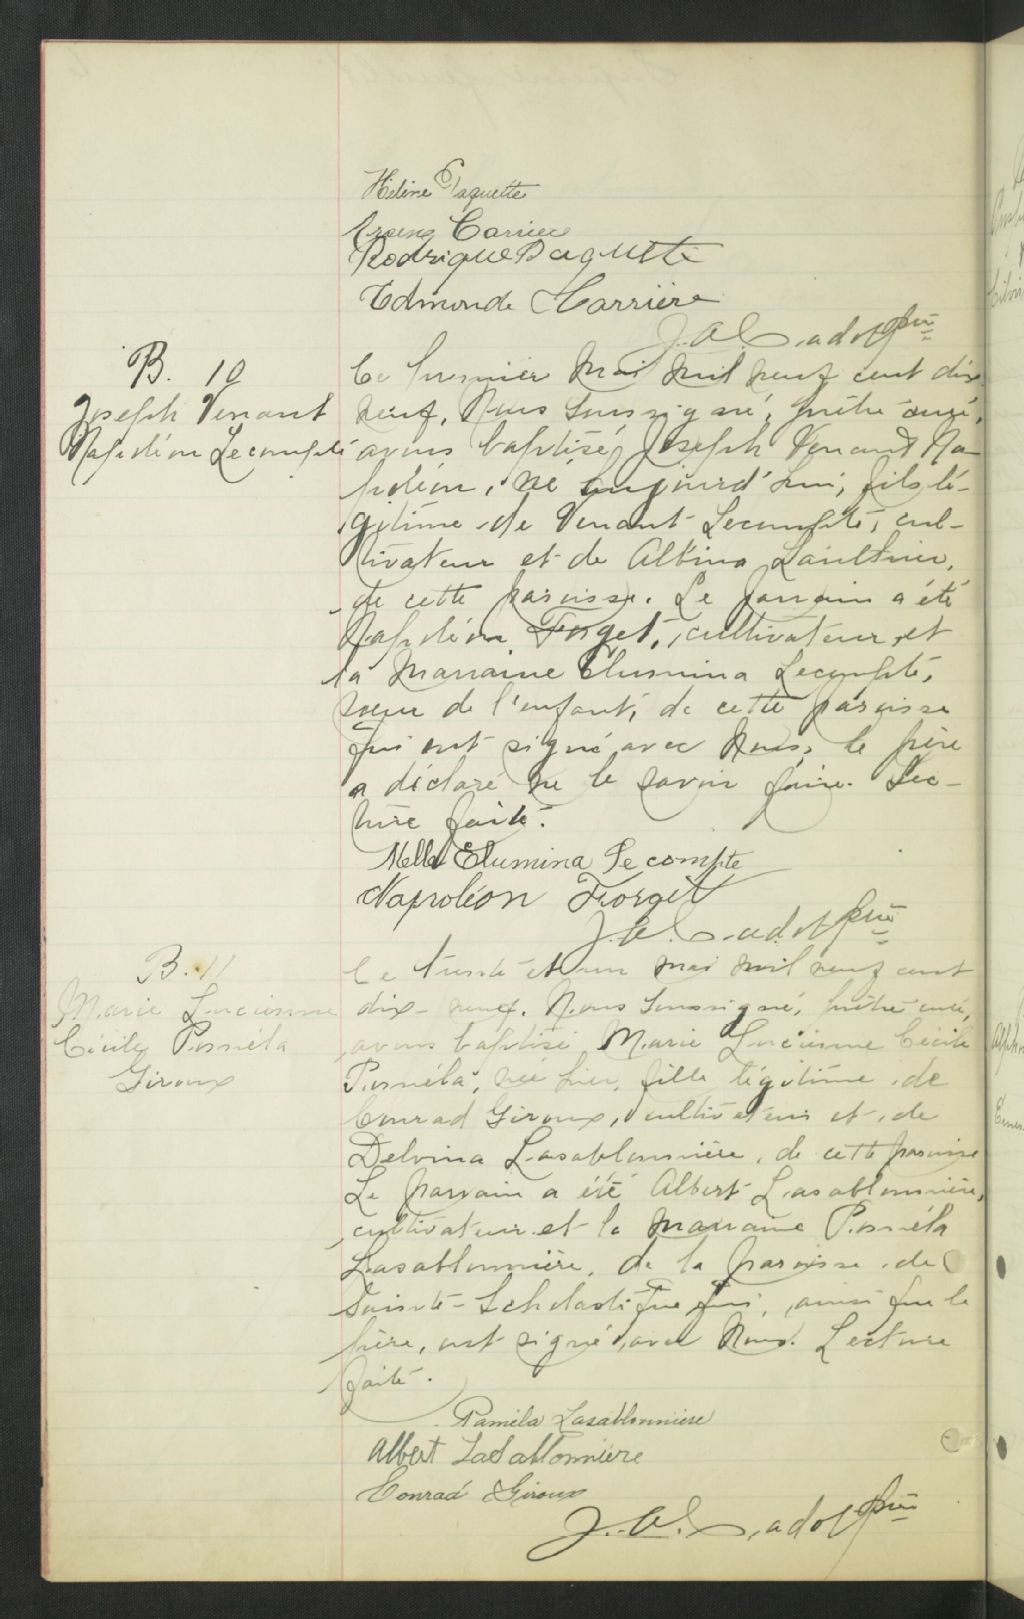 Hélène Paquette
Arsène Carrière
Rodrigue Paquette
Edmonde Carrière
J. A. ptre
B. 10
Joseph Venant
Napoléon Lecompte
Le premier Mai mil neuf cent dix
neuf, Nous soussigné, prêtre curé,
avons baptisé Joseph Venant Na-
poléon, né aujourd'hui, fils lé-
gitime de Venant Lecompte, cul-
tivateur et de Albina Vaillier,
de cette paroisse. Le parrain a été
Napoléon Forget, cultivateur et
la marraine Elumina Lecompte,
soeur de l'enfant, de cette paroisse
qui ont signé avec Nous, le père
a déclaré ne le savoir faire. Lec-
ture faite.
Melle Elumina Lecompte
Napoléon Forget
J. A. ptre
B. 11
Marie Lucienne
Cécile Paméla
Giroux
Le trente et un mai mil neuf cent
dix-neuf, Nous soussigné, prêtre curé,
avons baptisé Marie Lucienne Cécile
Paméla, née hier, fille légitime de
Conrad Giroux, cultivateur et de
Delvina Lasablonnière, de cette paroisse
Le parrain a été Albert Lasablonnière,
cultivateur et la marraine Paméla
Lasablonnière, de la paroisse de
Sainte-Scholastique qui, ainsi que le
père, ont signé avec Nous. Lecture
faite.
Paméla Lasablonnière
Albert LaSablonnière
Conrad Giroux
J. A. ptre